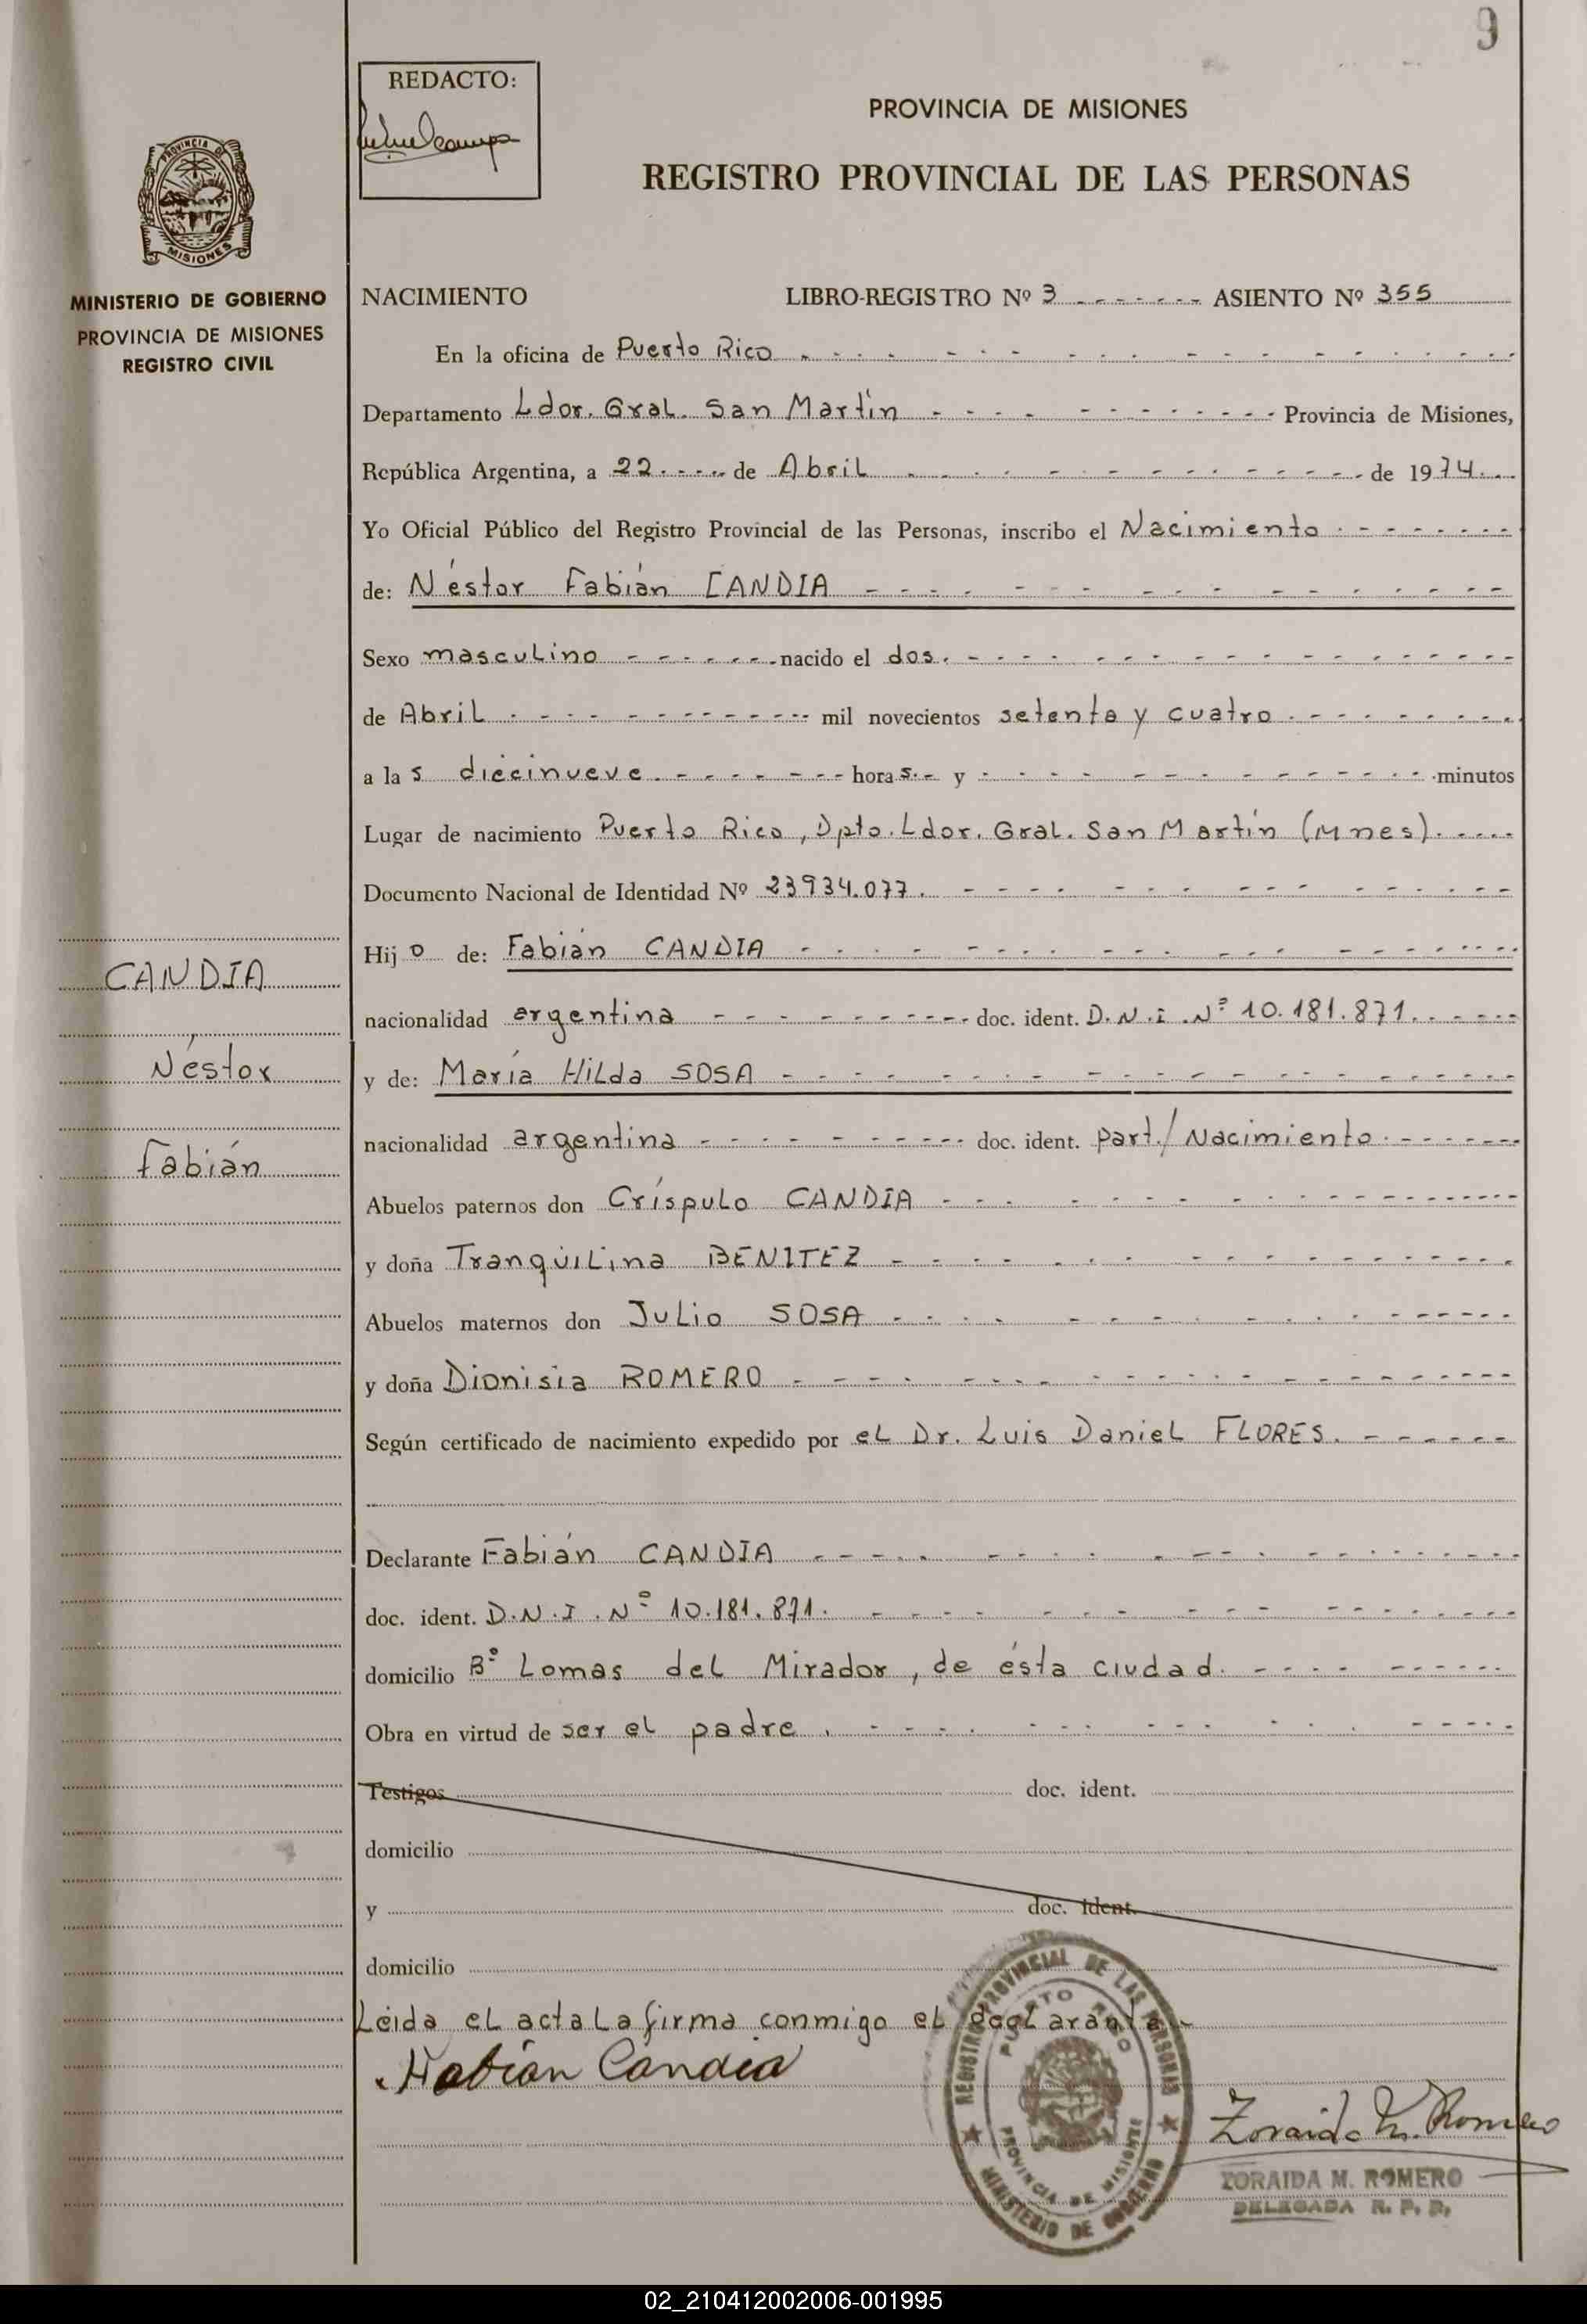 9
REDACTO:
PROVINCIA DE MISIONES
REGISTRO PROVINCIAL DE LAS PERSONAS
PROVINCIA DE
MISIONES
MINISTERIO DE GOBIERNO
PROVINCIA DE MISIONES
REGISTRO CIVIL
NACIMIENTO LIBRO-REGISTRO Nº 3 ASIENTO Nº 355
En la oficina de Puerto Rico
Departamento Ldor. Gral. San Martín Provincia de Misiones,
República Argentina, a 22 de Abril de 1974.
Yo Oficial Público del Registro Provincial de las Personas, inscribo el Nacimiento
de: Néstor Fabián CANDIA
Sexo masculino nacido el dos.
de Abril mil novecientos setenta y cuatro
a las diecinueve horas. y minutos
Lugar de nacimiento Puerto Rico, Dpto. Ldor. Gral. San Martín (Mnes).
Documento Nacional de Identidad Nº 23934.077.
Hijo de: Fabián CANDIA
nacionalidad argentina doc. ident. D.N.I. Nº 10.181.871.
y de: María Hilda SOSA
nacionalidad argentina doc. ident. part./Nacimiento
Abuelos paternos don Críspulo CANDIA
y doña Tranquilina BENITEZ
Abuelos maternos don Julio SOSA
y doña Dionisia ROMERO
Según certificado de nacimiento expedido por el Dr. Luis Daniel FLORES.
Declarante Fabián CANDIA
doc. ident. D.N.I. Nº 10.181.871.
domicilio Bº Lomas del Mirador, de ésta ciudad.
Obra en virtud de ser el padre.
Testigos doc. ident.
domicilio
y doc. ident.
domicilio
Leida el acta la firma conmigo el declarante.
Fabian Candia
CANDIA
Néstor
Fabián
REGISTRO PROVINCIAL DE LAS PERSONAS
PUERTO RICO
PROVINCIA DE MISIONES
MINISTERIO DE GOBIERNO
Zoraida M. Romero
ZORAIDA M. ROMERO
DELEGADA R. P. P.
02_210412002006-001995